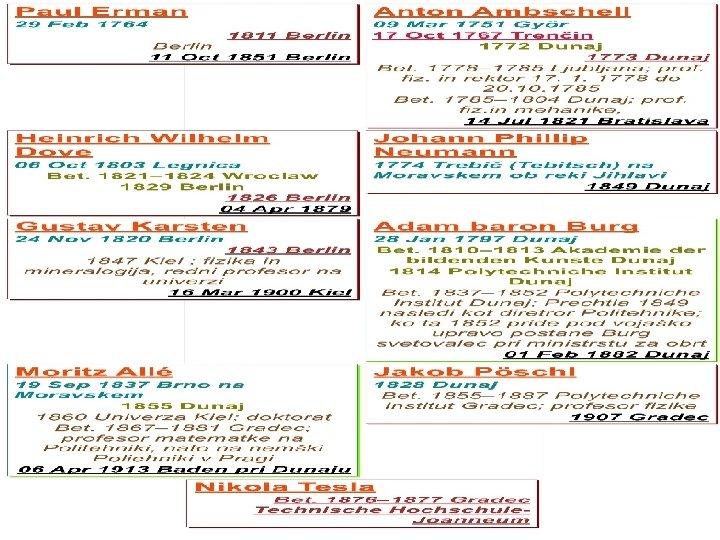 Paul Erman
29 Feb 1764
1811 Berlin
Berlin
11 Oct 1851 Berlin
Anton Ambschell
09 Mar 1751 Györ
17 Oct 1767 Trenčin
1772 Dunaj
1773 Dunaj
Bet. 1778–1785 Ljubljana; prof.
fiz. in rektor 17. 1. 1778 do
20.10.1785
Bet. 1785–1804 Dunaj; prof.
fiz.in mehanike,
14 Jul 1821 Bratislava
Heinrich Wilhelm
Dove
06 Oct 1803 Legnica
Bet. 1821–1824 Wroclaw
1829 Berlin
1826 Berlin
04 Apr 1879
Johann Phillip
Neumann
1774 Trebič (Tebitsch) na
Moravskem ob reki Jihlavi
1849 Dunaj
Gustav Karsten
24 Nov 1820 Berlin
1843 Berlin
1847 Kiel ; fizika in
mineralogija, redni profesor na
univerzi
16 Mar 1900 Kiel
Adam baron Burg
28 Jan 1797 Dunaj
Bet. 1810–1813 Akademie der
bildenden Kunste Dunaj
1814 Polytechniche Institut
Dunaj
Bet. 1837–1852 Polytechniche
Institut Dunaj; Prechtla 1849
nasledi kot diretror Politehnike;
ko ta 1852 pride pod vojaško
upravo postane Burg
svetovalec pri ministrstu za obrt
01 Feb 1882 Dunaj
Moritz Allé
19 Sep 1837 Brno na
Moravskem
1855 Dunaj
1860 Univerza Kiel: doktorat
Bet. 1867–1881 Gradec;
profesor matematke na
Politehniki, nato na nemški
Poliehniki v Pragi
06 Apr 1913 Baden pri Dunaju
Jakob Pöschl
1828 Dunaj
Bet. 1855–1887 Polytechniche
Institut Gradec; profesor fizike
1907 Gradec
Nikola Tesla
Bet. 1876–1877 Gradec
Technische Hochschule-
Joanneum